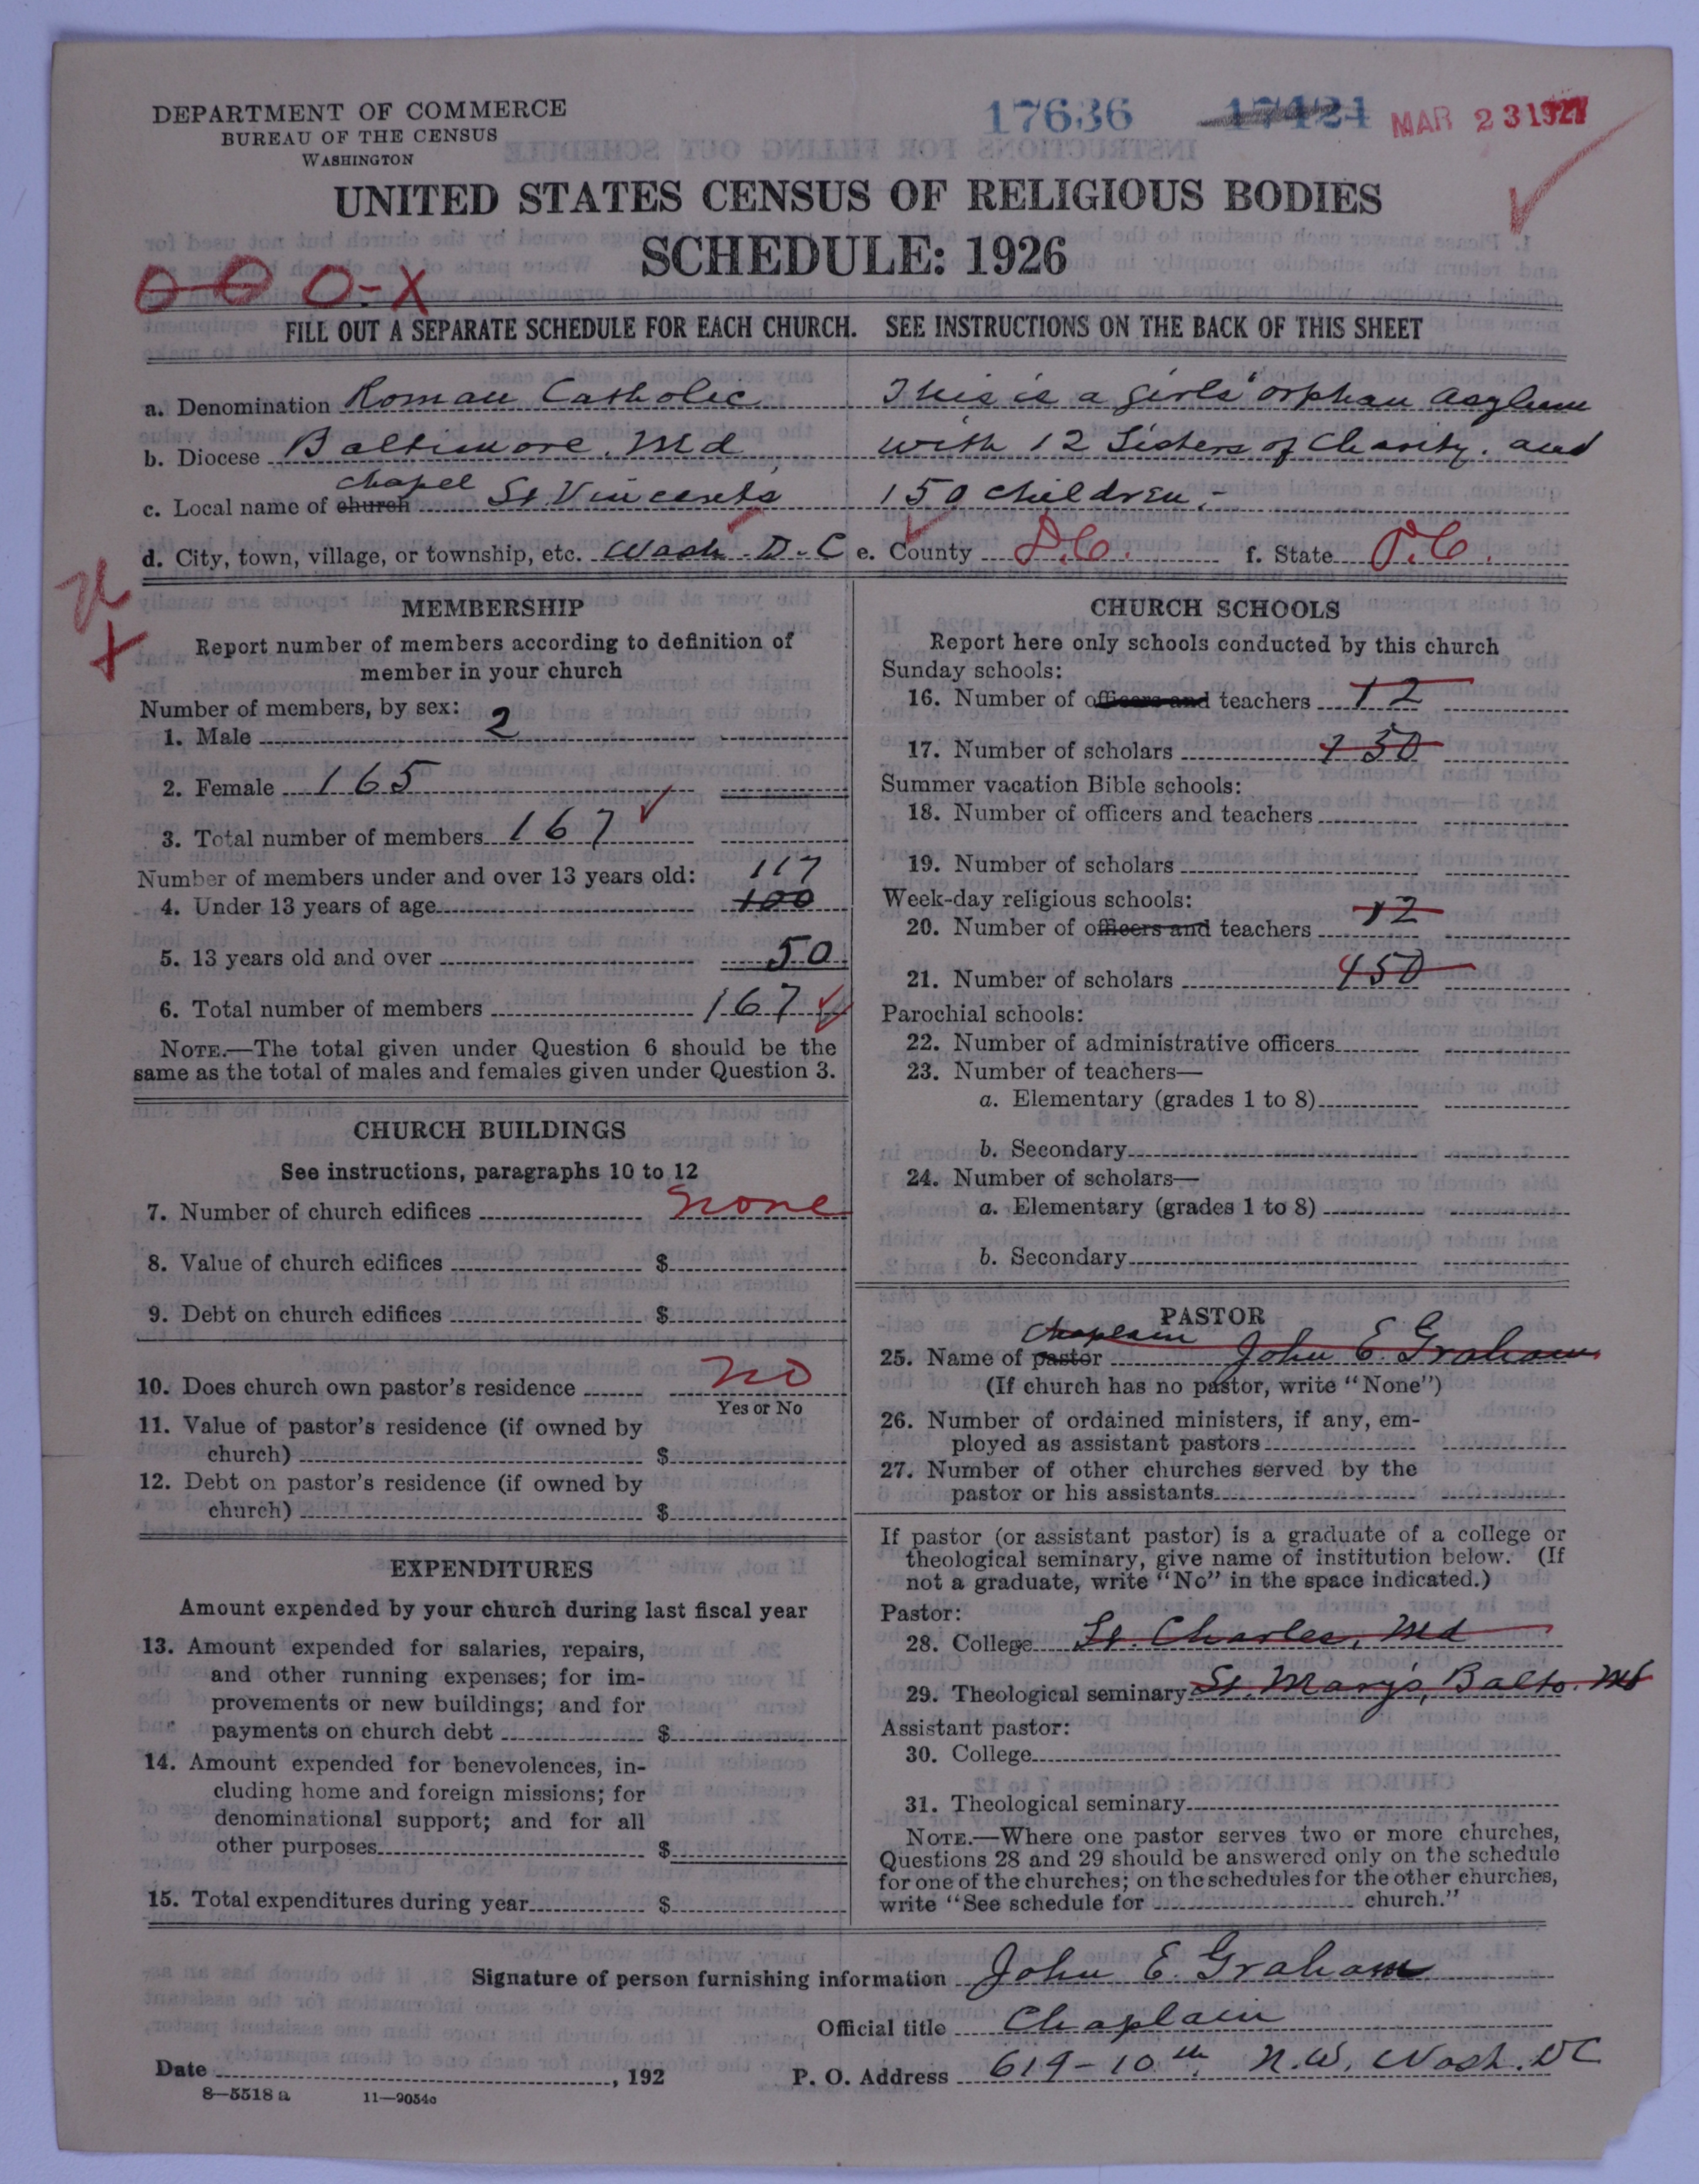 DEPARTMENT OF COMMERCE
BUREAU OF THE CENSUS
WASHINGTON
17636 17421 MAR 23 1927
UNITED STATES CENSUS OF RELIGIOUS BODIES
SCHEDULE: 1926
O-X
FILL OUT A SEPARATE SCHEDULE FOR EACH CHURCH. SEE INSTRUCTIONS ON THE BACK OF THIS SHEET
a. Denomination Roman Catholic
b. Diocese Baltimore. Md
chapel
c. Local name of church St. Vincents
This is a girls' orphan asylum
with 12 Sisters of Charity. and
150 children.-
d. City, town, village, or township, etc. Wash. D.C e. County D.C. f. State D.C.
MEMBERSHIP
Report number of members according to definition of
member in your church
Number of members, by sex:
1. Male 2
2. Female 165
3. Total number of members 167
Number of members under and over 13 years old: 117
4. Under 13 years of age 100
5. 13 years old and over 50
6. Total number of members 167
NOTE.—The total given under Question 6 should be the
same as the total of males and females given under Question 3.
CHURCH BUILDINGS
See instructions, paragraphs 10 to 12
7. Number of church edifices none
8. Value of church edifices $
9. Debt on church edifices $
10. Does church own pastor's residence no
Yes or No
11. Value of pastor's residence (if owned by
church) $
12. Debt on pastor's residence (if owned by
church) $
EXPENDITURES
Amount expended by your church during last fiscal year
13. Amount expended for salaries, repairs,
and other running expenses; for im-
provements or new buildings; and for
payments on church debt $
14. Amount expended for benevolences, in-
cluding home and foreign missions; for
denominational support; and for all
other purposes $
15. Total expenditures during year $
CHURCH SCHOOLS
Report here only schools conducted by this church
Sunday schools:
16. Number of officers and teachers 12
17. Number of scholars 150
Summer vacation Bible schools:
18. Number of officers and teachers
19. Number of scholars
Week-day religious schools:
20. Number of officers and teachers 12
21. Number of scholars 150
Parochial schools:
22. Number of administrative officers
23. Number of teachers—
a. Elementary (grades 1 to 8)
b. Secondary
24. Number of scholars—
a. Elementary (grades 1 to 8)
b. Secondary
PASTOR
Chaplain
25. Name of pastor John E. Graham
(If church has no pastor, write "None")
26. Number of ordained ministers, if any, em-
ployed as assistant pastors
27. Number of other churches served by the
pastor or his assistants
If pastor (or assistant pastor) is a graduate of a college or
theological seminary, give name of institution below. (If
not a graduate, write "No" in the space indicated.)
Pastor:
28. College St. Charles, Md
29. Theological seminary St. Mary's, Balto. Md
Assistant pastor:
30. College
31. Theological seminary
NOTE.—Where one pastor serves two or more churches,
Questions 28 and 29 should be answered only on the schedule
for one of the churches; on the schedules for the other churches,
write "See schedule for church."
Signature of person furnishing information John E. Graham
Official title Chaplain
Date , 192
P. O. Address 619-10th N.W. Wash. DC
8—5518 a 11—9054c